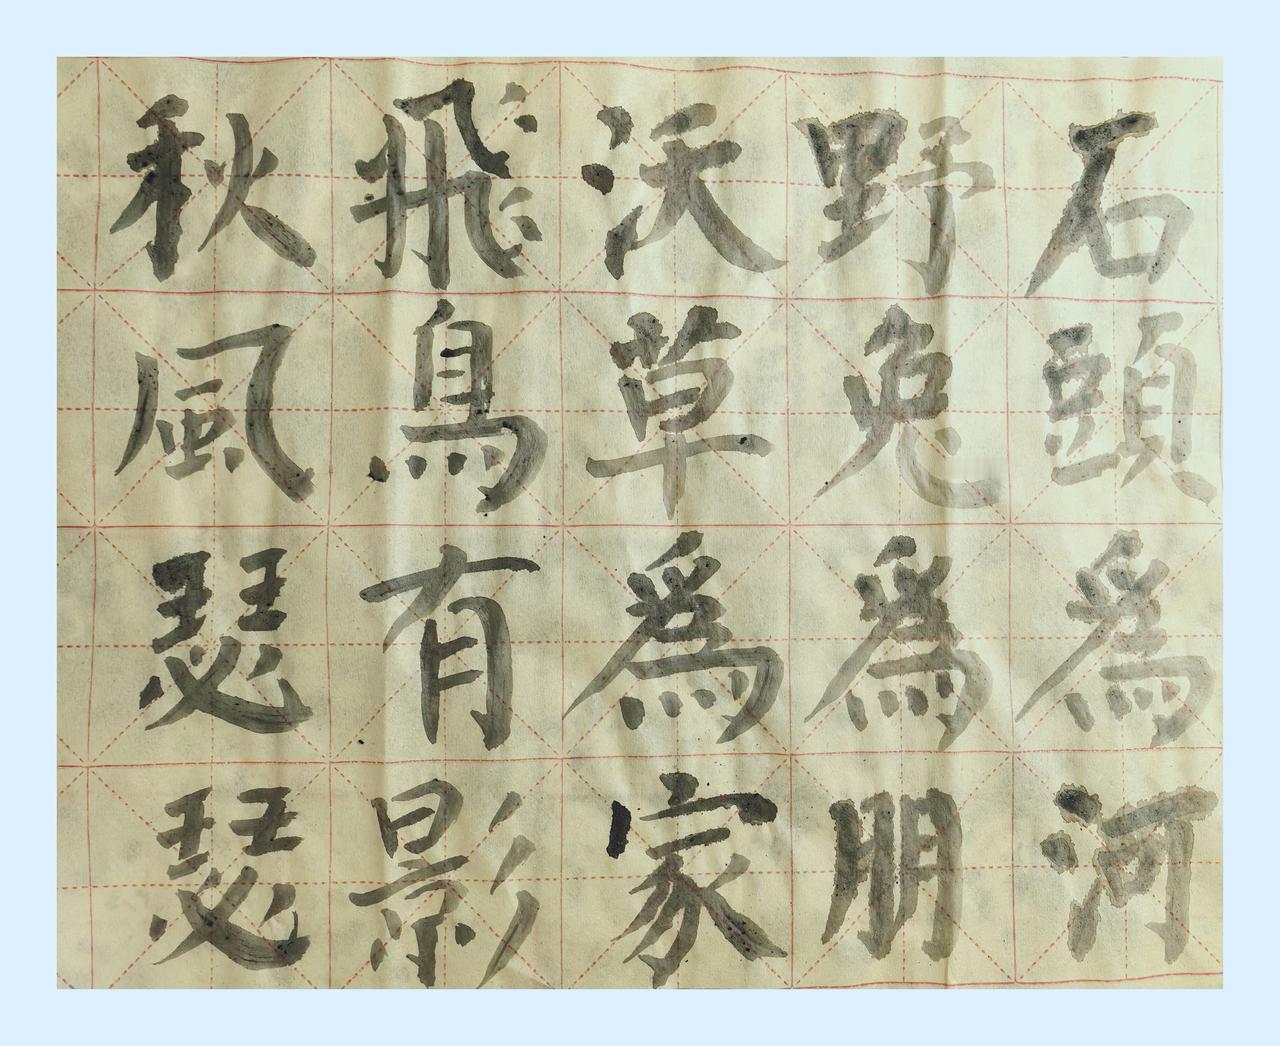 石頭爲河
野兔爲朋
沃草爲家
飛鳥有影
秋風瑟瑟